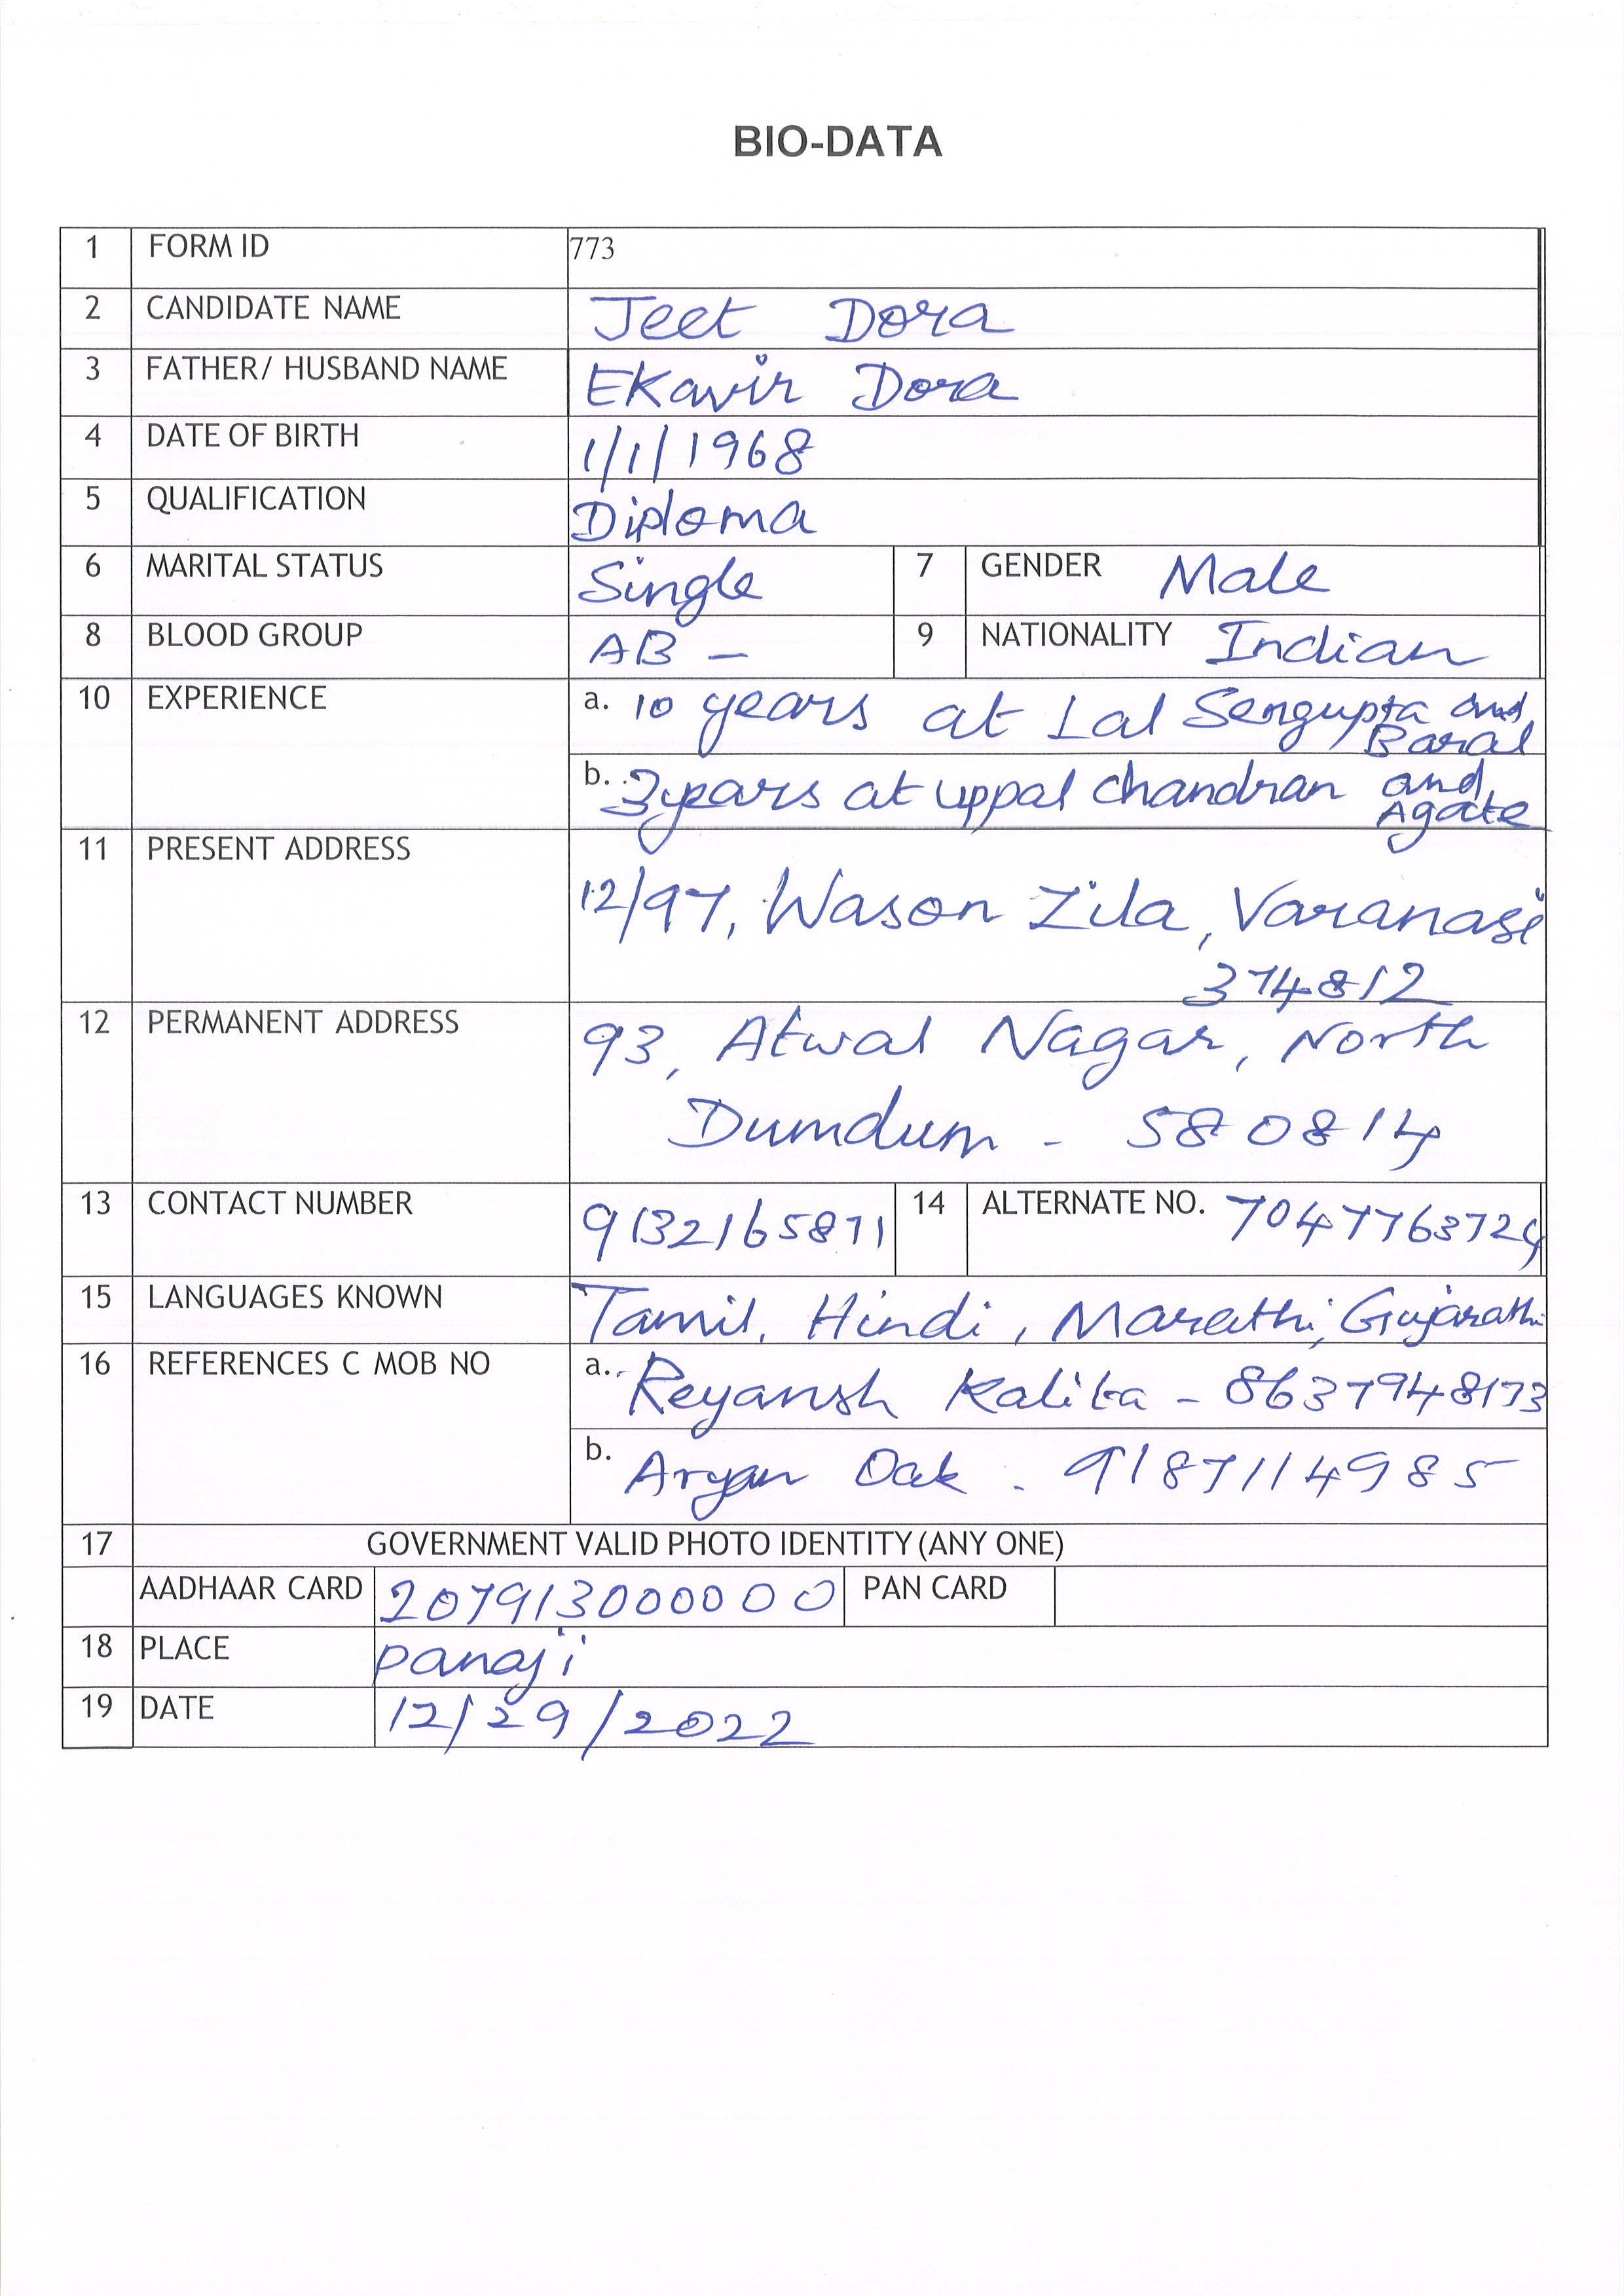 BIO-DATA
1 FORM ID 773
2 CANDIDATE NAME Jeet Dora
3 FATHER/ HUSBAND NAME Ekavir Dora
4 DATE OF BIRTH 1/1/1968
5 QUALIFICATION Diploma
6 MARITAL STATUS Single 7 GENDER Male
8 BLOOD GROUP AB - 9 NATIONALITY Indian
10 EXPERIENCE a. 10 years at Lal Sengupta and
Baral
b. 3 years at uppal chandran and
Agate
11 PRESENT ADDRESS
12/97, Wason Zila, Varanasi
374812
12 PERMANENT ADDRESS 93, Atwal Nagar, North
Dumdum - 580814
13 CONTACT NUMBER 9132165871 14 ALTERNATE NO. 7047763724
15 LANGUAGES KNOWN Tamil, Hindi, Marathi, Gujarathi
16 REFERENCES C MOB NO a. Reyansh Kalita - 8637948173
b. Aryan Oak - 9187114985
17 GOVERNMENT VALID PHOTO IDENTITY (ANY ONE)
AADHAAR CARD 207913000000 PAN CARD
18 PLACE Panaji
19 DATE 12/29/2022